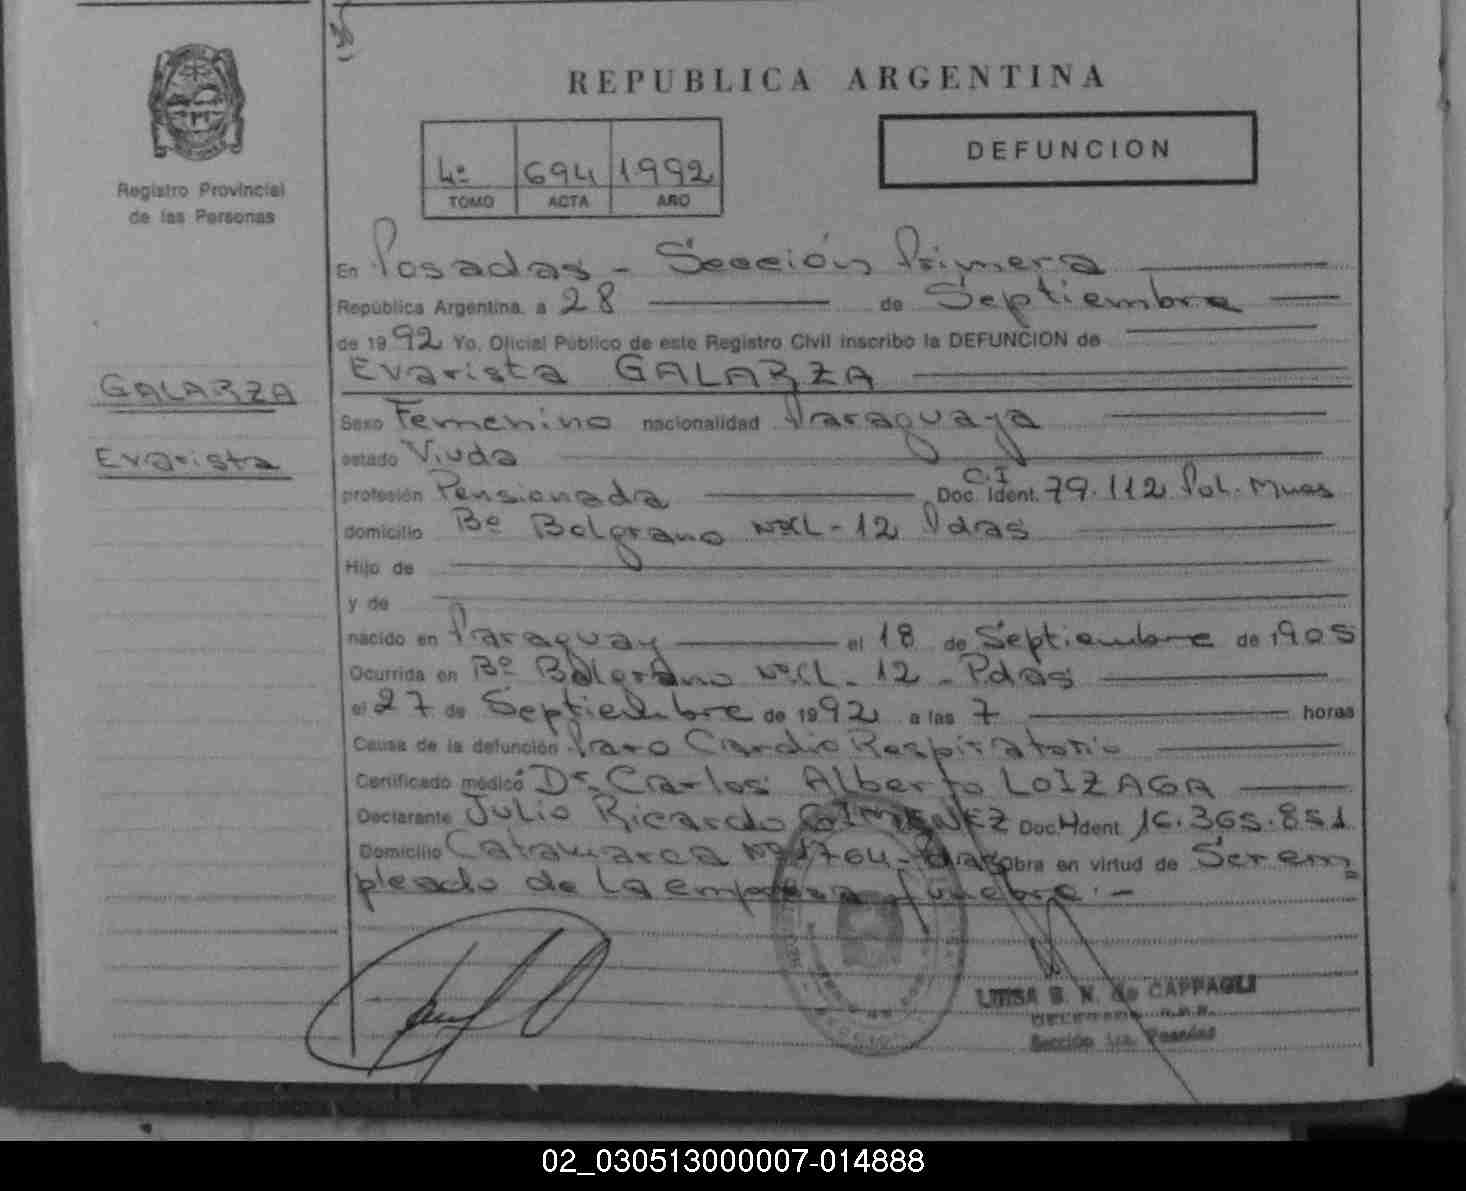 REPUBLICA ARGENTINA
DEFUNCION
4º 694 1992
TOMO ACTA AÑO
Registro Provincial
de las Personas
GALARZA
Evarista
En Posadas - Sección Primera
República Argentina, a 28 de Septiembre
de 1992 Yo, Oficial Público de este Registro Civil inscribo la DEFUNCION de
Evarista GALARZA
Sexo Femenino nacionalidad Paraguaya
estado Viuda
C.I
profesión Pensionada Doc. Ident. 79.112 Pol. Mnes
domicilio Bº Belgrano 12 Pdas
Hijo de
y de
nacido en Paraguay el 18 de Septiembre de 1905
Ocurrida en Bº Belgrano 12 - Pdas
el 27 de Septiembre de 1992 a las 7 horas
Causa de la defunción Paro Cardio Respiratorio
Certificado médico Dr. Carlos Alberto LOIZAGA
Declarante Julio Ricardo GIMENEZ Doc. Ident. 16.365.851
Domicilio Catamarca Nº 1764 - Pdas Obra en virtud de Ser em
pleado de la empresa fúnebre.-
LUISA B. N. de CAPPAGLI
DELEGADA
Sección 1ra. Posadas
02_030513000007-014888